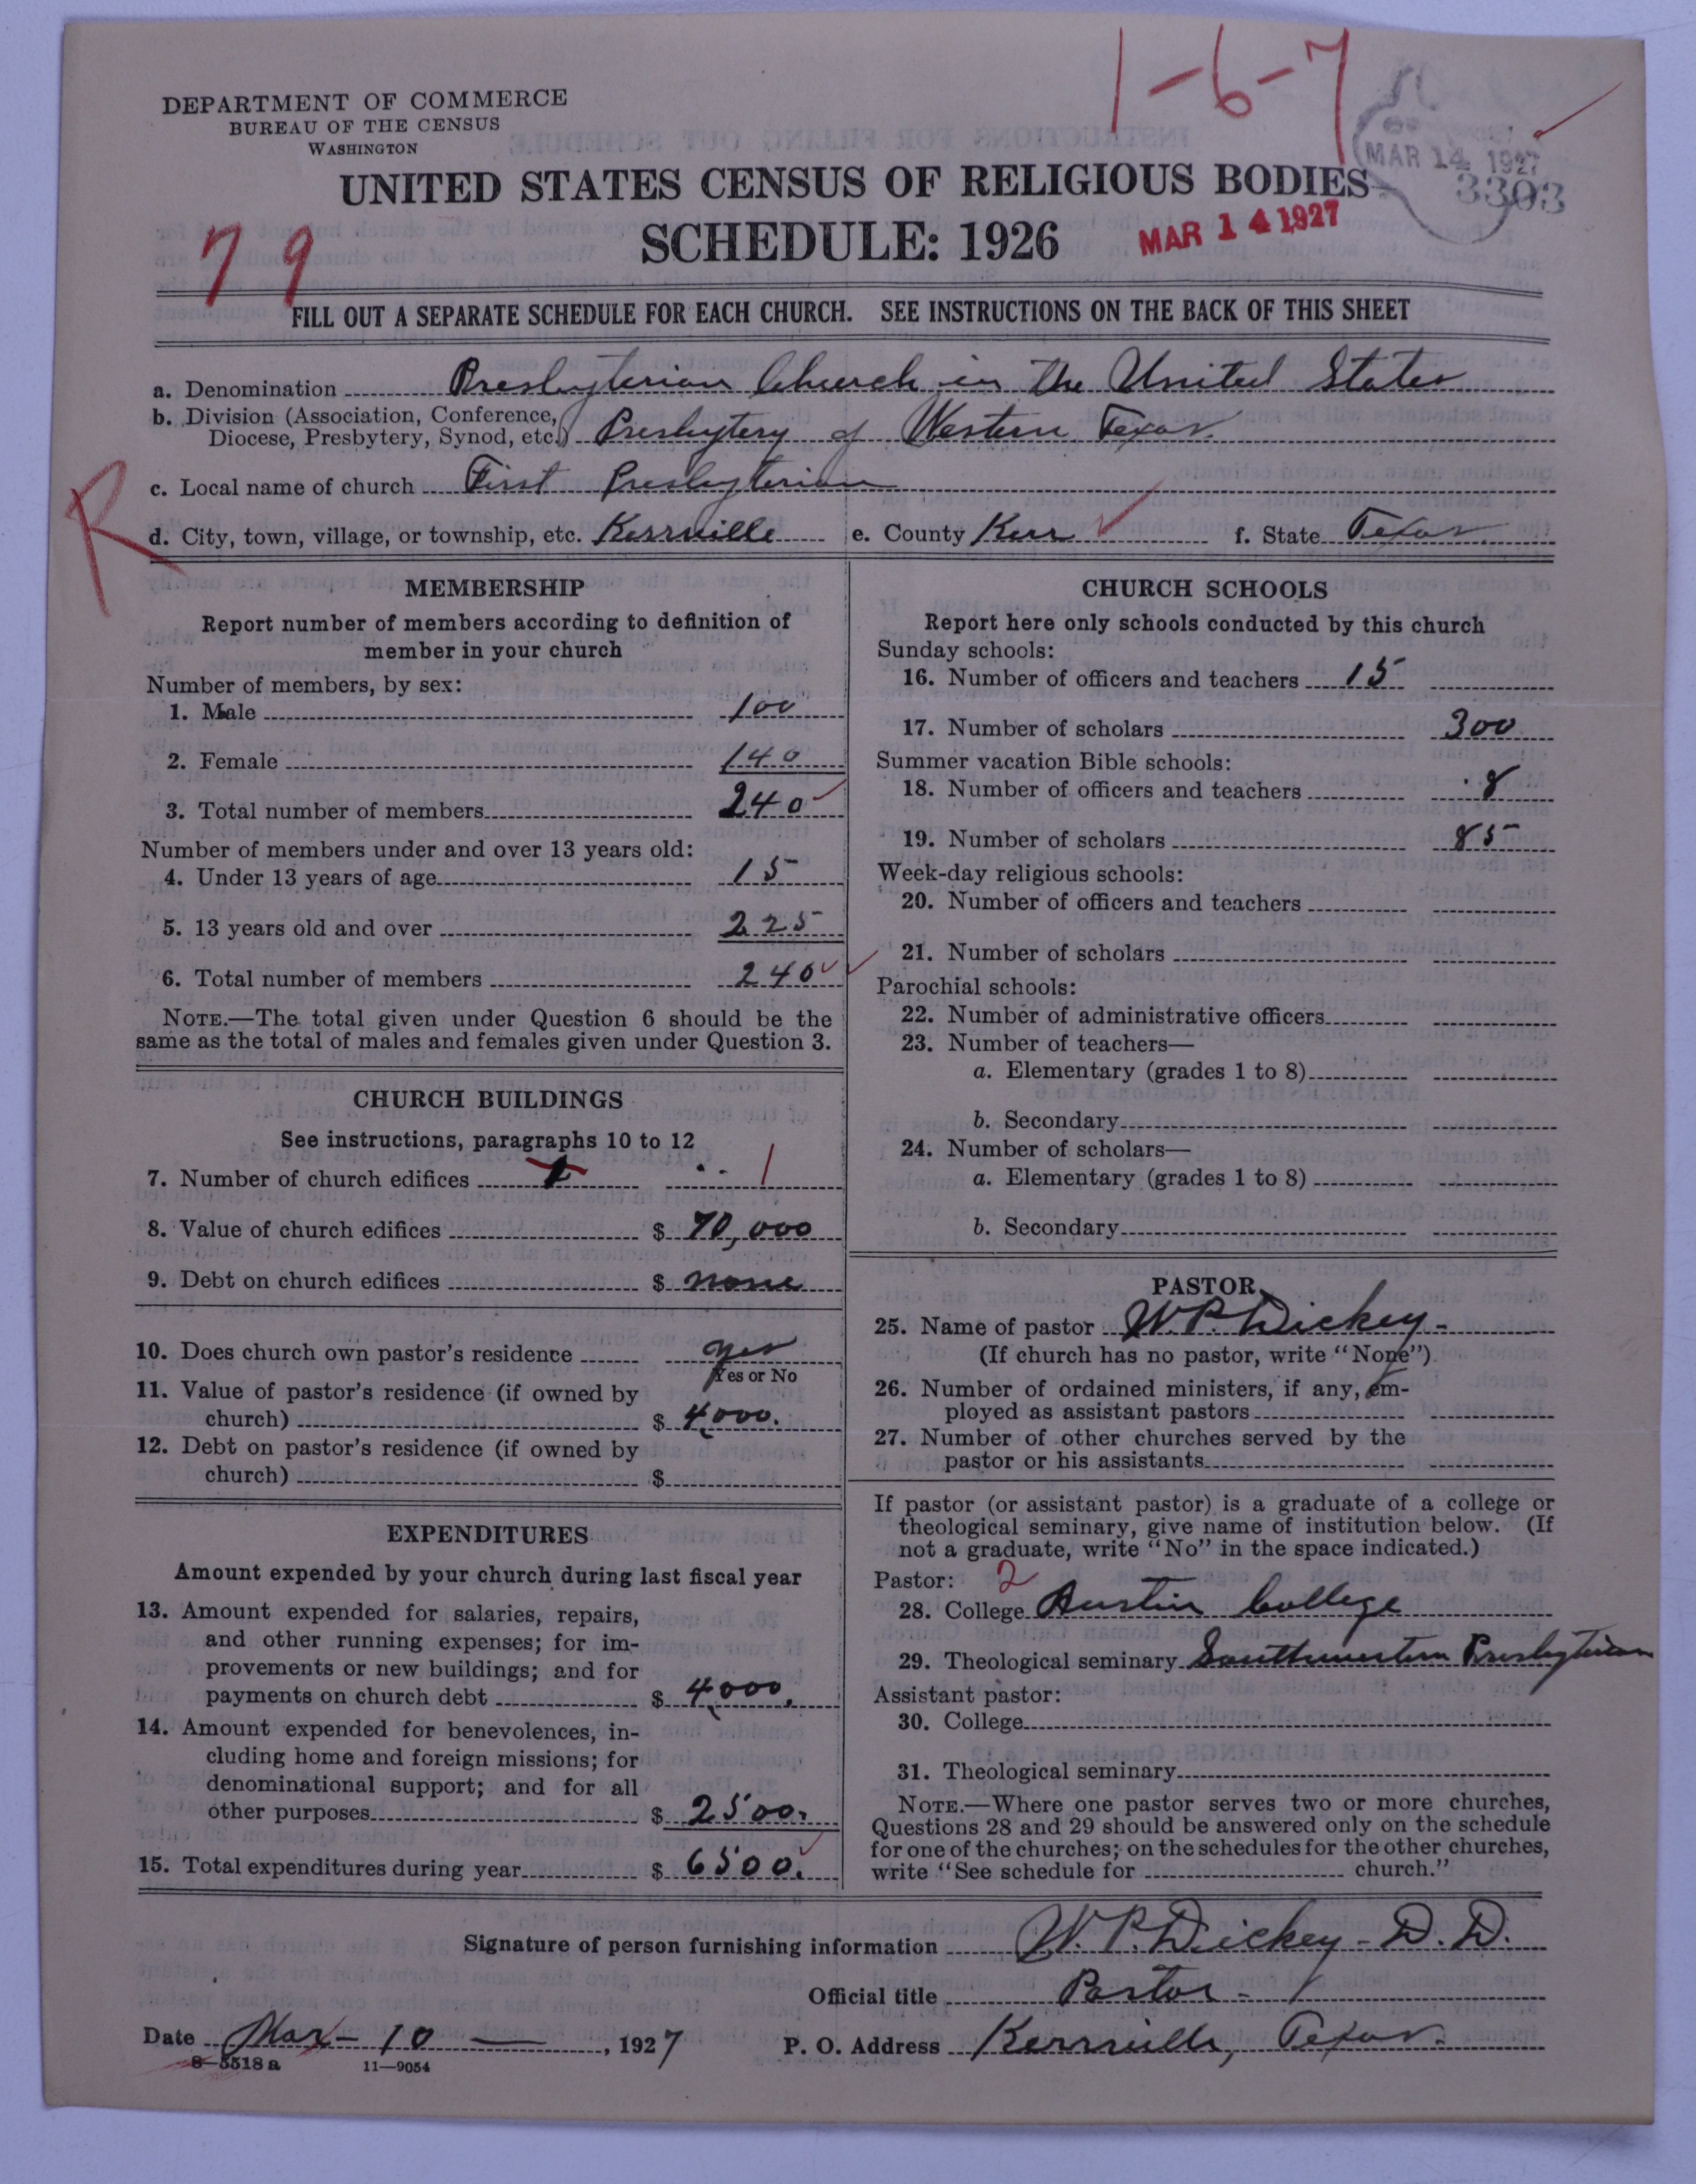 1-6-7
DEPARTMENT OF COMMERCE
BUREAU OF THE CENSUS
WASHINGTON
MAR 14 1927
3303
UNITED STATES CENSUS OF RELIGIOUS BODIES
79
SCHEDULE: 1926
MAR 14 1927
FILL OUT A SEPARATE SCHEDULE FOR EACH CHURCH. SEE INSTRUCTIONS ON THE BACK OF THIS SHEET
a. Denomination Presbyterian Church in the United States
b. Division (Association, Conference,
Diocese, Presbytery, Synod, etc.) Presbytery of Western Texas
R
c. Local name of church First Presbyterian
d. City, town, village, or township, etc. Kerrville e. County Kerr f. State Texas
MEMBERSHIP
Report number of members according to definition of
member in your church
Number of members, by sex:
1. Male 100
2. Female 140
3. Total number of members 240
Number of members under and over 13 years old:
4. Under 13 years of age 15
5. 13 years old and over 225
6. Total number of members 240
NOTE.—The total given under Question 6 should be the
same as the total of males and females given under Question 3.
CHURCH BUILDINGS
See instructions, paragraphs 10 to 12
7. Number of church edifices 1
8. Value of church edifices $ 70,000
9. Debt on church edifices $ none
10. Does church own pastor's residence yes
Yes or No
11. Value of pastor's residence (if owned by
church) $ 4000.
12. Debt on pastor's residence (if owned by
church) $
EXPENDITURES
Amount expended by your church during last fiscal year
13. Amount expended for salaries, repairs,
and other running expenses; for im-
provements or new buildings; and for
payments on church debt $ 4000.
14. Amount expended for benevolences, in-
cluding home and foreign missions; for
denominational support; and for all
other purposes $ 2500.
15. Total expenditures during year $ 6500.
CHURCH SCHOOLS
Report here only schools conducted by this church
Sunday schools:
16. Number of officers and teachers 15
17. Number of scholars 300
Summer vacation Bible schools:
18. Number of officers and teachers 8
19. Number of scholars 85
Week-day religious schools:
20. Number of officers and teachers
21. Number of scholars
Parochial schools:
22. Number of administrative officers
23. Number of teachers—
a. Elementary (grades 1 to 8)
b. Secondary
24. Number of scholars—
a. Elementary (grades 1 to 8)
b. Secondary
PASTOR
25. Name of pastor W. P. Dickey-
(If church has no pastor, write "None")
26. Number of ordained ministers, if any, em-
ployed as assistant pastors
27. Number of other churches served by the
pastor or his assistants
If pastor (or assistant pastor) is a graduate of a college or
theological seminary, give name of institution below. (If
not a graduate, write "No" in the space indicated.)
Pastor: 2
28. College Austin College
29. Theological seminary Southwestern Presbyterian
Assistant pastor:
30. College
31. Theological seminary
NOTE.—Where one pastor serves two or more churches,
Questions 28 and 29 should be answered only on the schedule
for one of the churches; on the schedules for the other churches,
write "See schedule for church."
Signature of person furnishing information W. P. Dickey - D. D.
Official title Pastor-
Date Mar - 10 —, 1927 P. O. Address Kerrville, Texas.
8—5518 a 11—9054